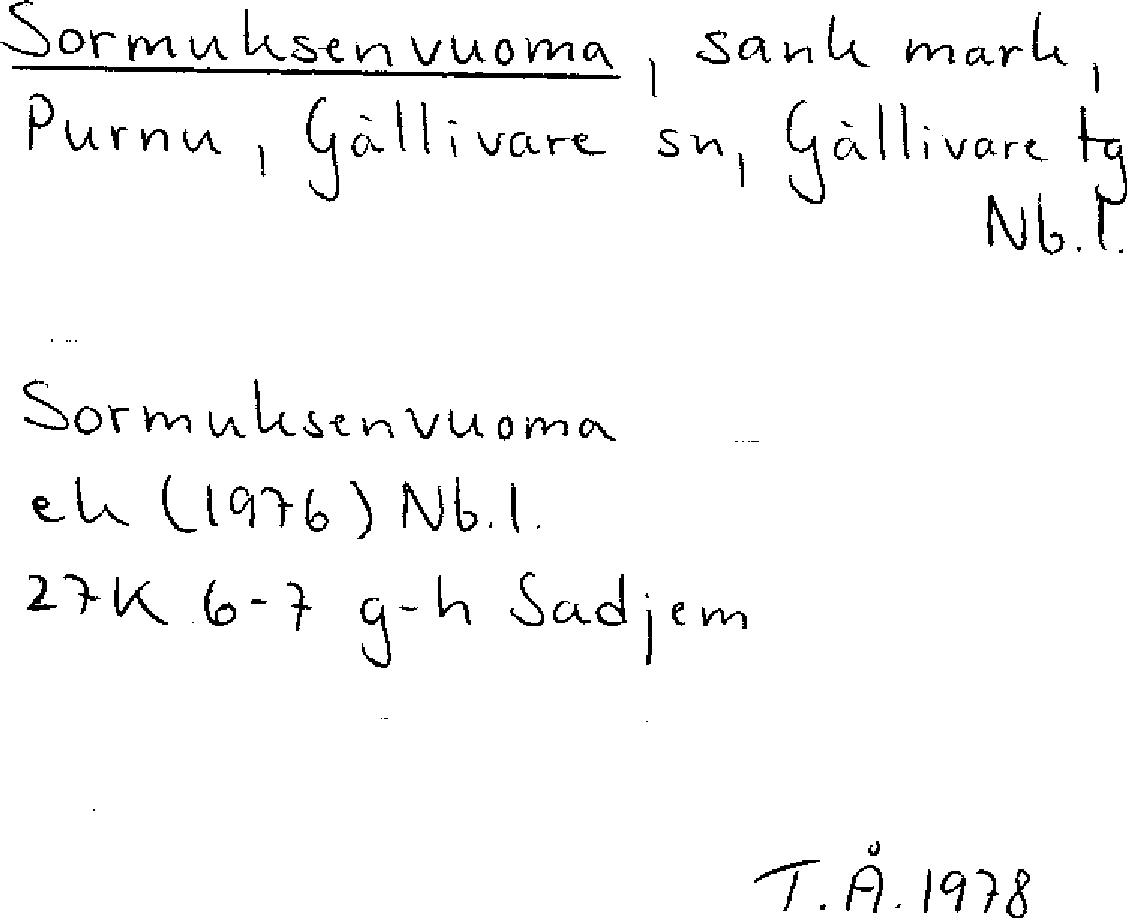 Sormuksenvuoma, sank mark,
Purnu, Gällivare sn, Gällivare tg
Nb.l.
Sormuksenvuoma
ek (1976) Nb.l.
27K 6-7 g-h Sadjem
T.Å. 1978